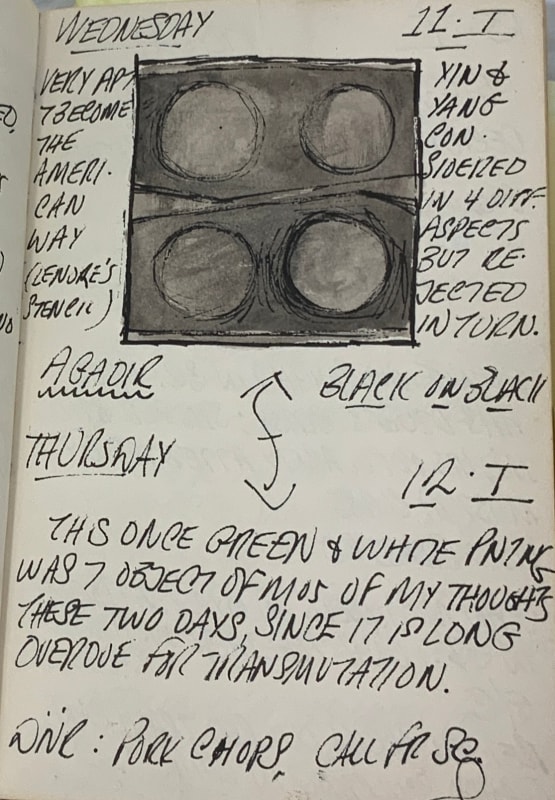 WEDNESDAY 11·I
VERY APT
T'BECOME
THE
AMERI-
CAN
WAY
(LENORE'S
STENCIL)
YIN &
YANG
CON-
SIDERED
IN 4 DIFF.
ASPECTS
BUT RE-
JECTED
IN TURN.
AGADIR
BLACK ON BLACK
THURSDAY 12·I
THIS ONCE GREEN & WHITE PNTNG
WAS T OBJECT OF MOS OF MY THOUGHTS
THESE TWO DAYS, SINCE IT IS LONG
OVERDUE FOR TRANSMUTATION.
DINR: PORK CHOPS, CALL FR SG.